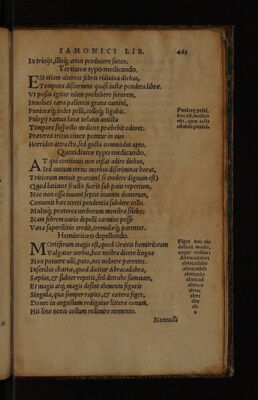 SAMONICI LIB. 463
In triuijs, illisq́; artus perducere succo.
Tertianæ typo medicando.
EST etiam alternis febris ridiuiua diebus,
Tempora discernens quasi iusta pondera libræ.
Vt possis igitur diem prohibere furorem,
Inuolues cæra pallentis grana cumini,
Puniceæq́; indes pelli, colloq́; ligabis.
Pulegij ramos lana uelatus
Tempore suspecto medicos præbebit odores.
Præterea tritus cimex potatur in ouo
Horridus attactu, sed gustu commodus apto.
Quotidianæ typo medicando.
AT qui continuis non cessat adire diebus,
Sed nullum certus morbus discriminat horæ,
Triticeum metuit granum (si credere dignum est)
Quod latitans fracto fuerit sub pane repertum,
Nec non ossa iuuant septis inuenta domorum,
Conueni hæc tereti pendentia subdere collo.
Multaq́; præterea uerborum monstra silebo:
Nam febrem uario depelli carmine posse
Vana superstitio credit, tremulæq́; parentes.
Hemitritæo depellendo.
MOrtiferum magis est, quod Græcis hemitritæum
Vulgatur uerbis, hoc nostra dicere lingua
Non potuere ulli, puto, nec uoluere parentes.
Inscribis chartæ, quod dicitur Abracadabra,
Sæpius, & subter repetis, sed detrahe summam,
Et magis atq; magis desint elementa figuris
Singula, quæ semper rapies, & cætera figes,
Donec in angustum redigatur litera conum.
His lino nexis collum redimire memento.
Nonnulli
Abracadabra
abracadabr
abracadab
abracada
abracad
abraca
abrac
abra
abr
ab
a